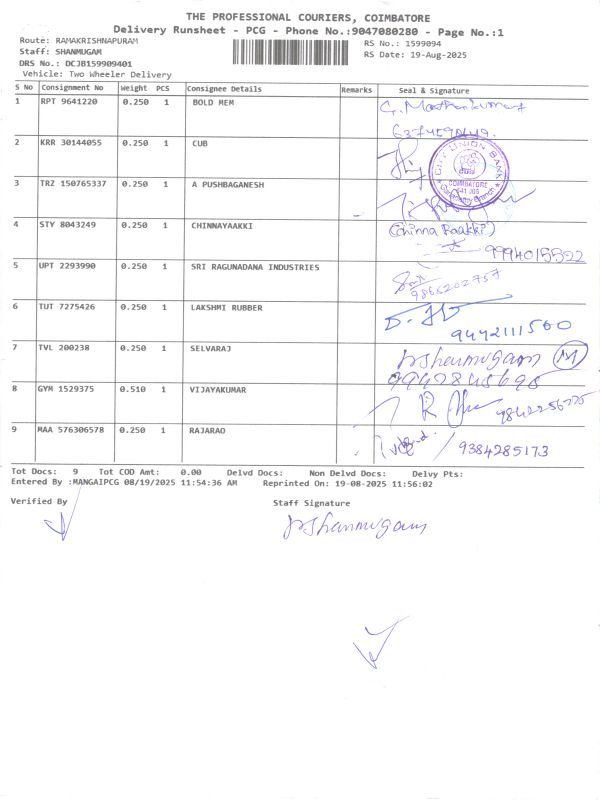 THE PROFESSIONAL COURIERS, COIMBATORE
Delivery Runsheet - PCG - Phone No.:9047080280 - Page No.:1
Route: RAMAKRISHNAPURAM
RS No.: 1599094
Staff: SHANMUGAM
RS Date: 19-Aug-2025
DRS No.: DCJB159909401
Vehicle: Two Wheeler Delivery
S No Consignment No Weight PCS Consignee Details Remarks Seal & Signature
1 RPT 9641220 0.250 1 BOLD MEM
2 KRR 30144055 0.250 1 CUB
CITY UNION BANK
COIMBATORE
3 TRZ 150765337 0.250 1 A PUSHBAGANESH
4 STY 8043249 0.250 1 CHINNAYAAKKI (Chinna Raakki)
5 UPT 2293990 0.250 1 SRI RAGUNADANA INDUSTRIES
9865202757
6 TUT 7275426 0.250 1 LAKSHMI RUBBER
9442111560
7 TVL 200238 0.250 1 SELVARAJ Shanmugam M
8 GYM 1529375 0.510 1 VIJAYAKUMAR
9 MAA 576306578 0.250 1 RAJARAO / 9384285173
Tot Docs: 9 Tot COD Amt: 0.00 Delvd Docs: Non Delvd Docs: Delvy Pts:
Entered By :MANGAIPCG 08/19/2025 11:54:36 AM Reprinted On: 19-08-2025 11:56:02
Verified By Staff Signature
Shanmugam